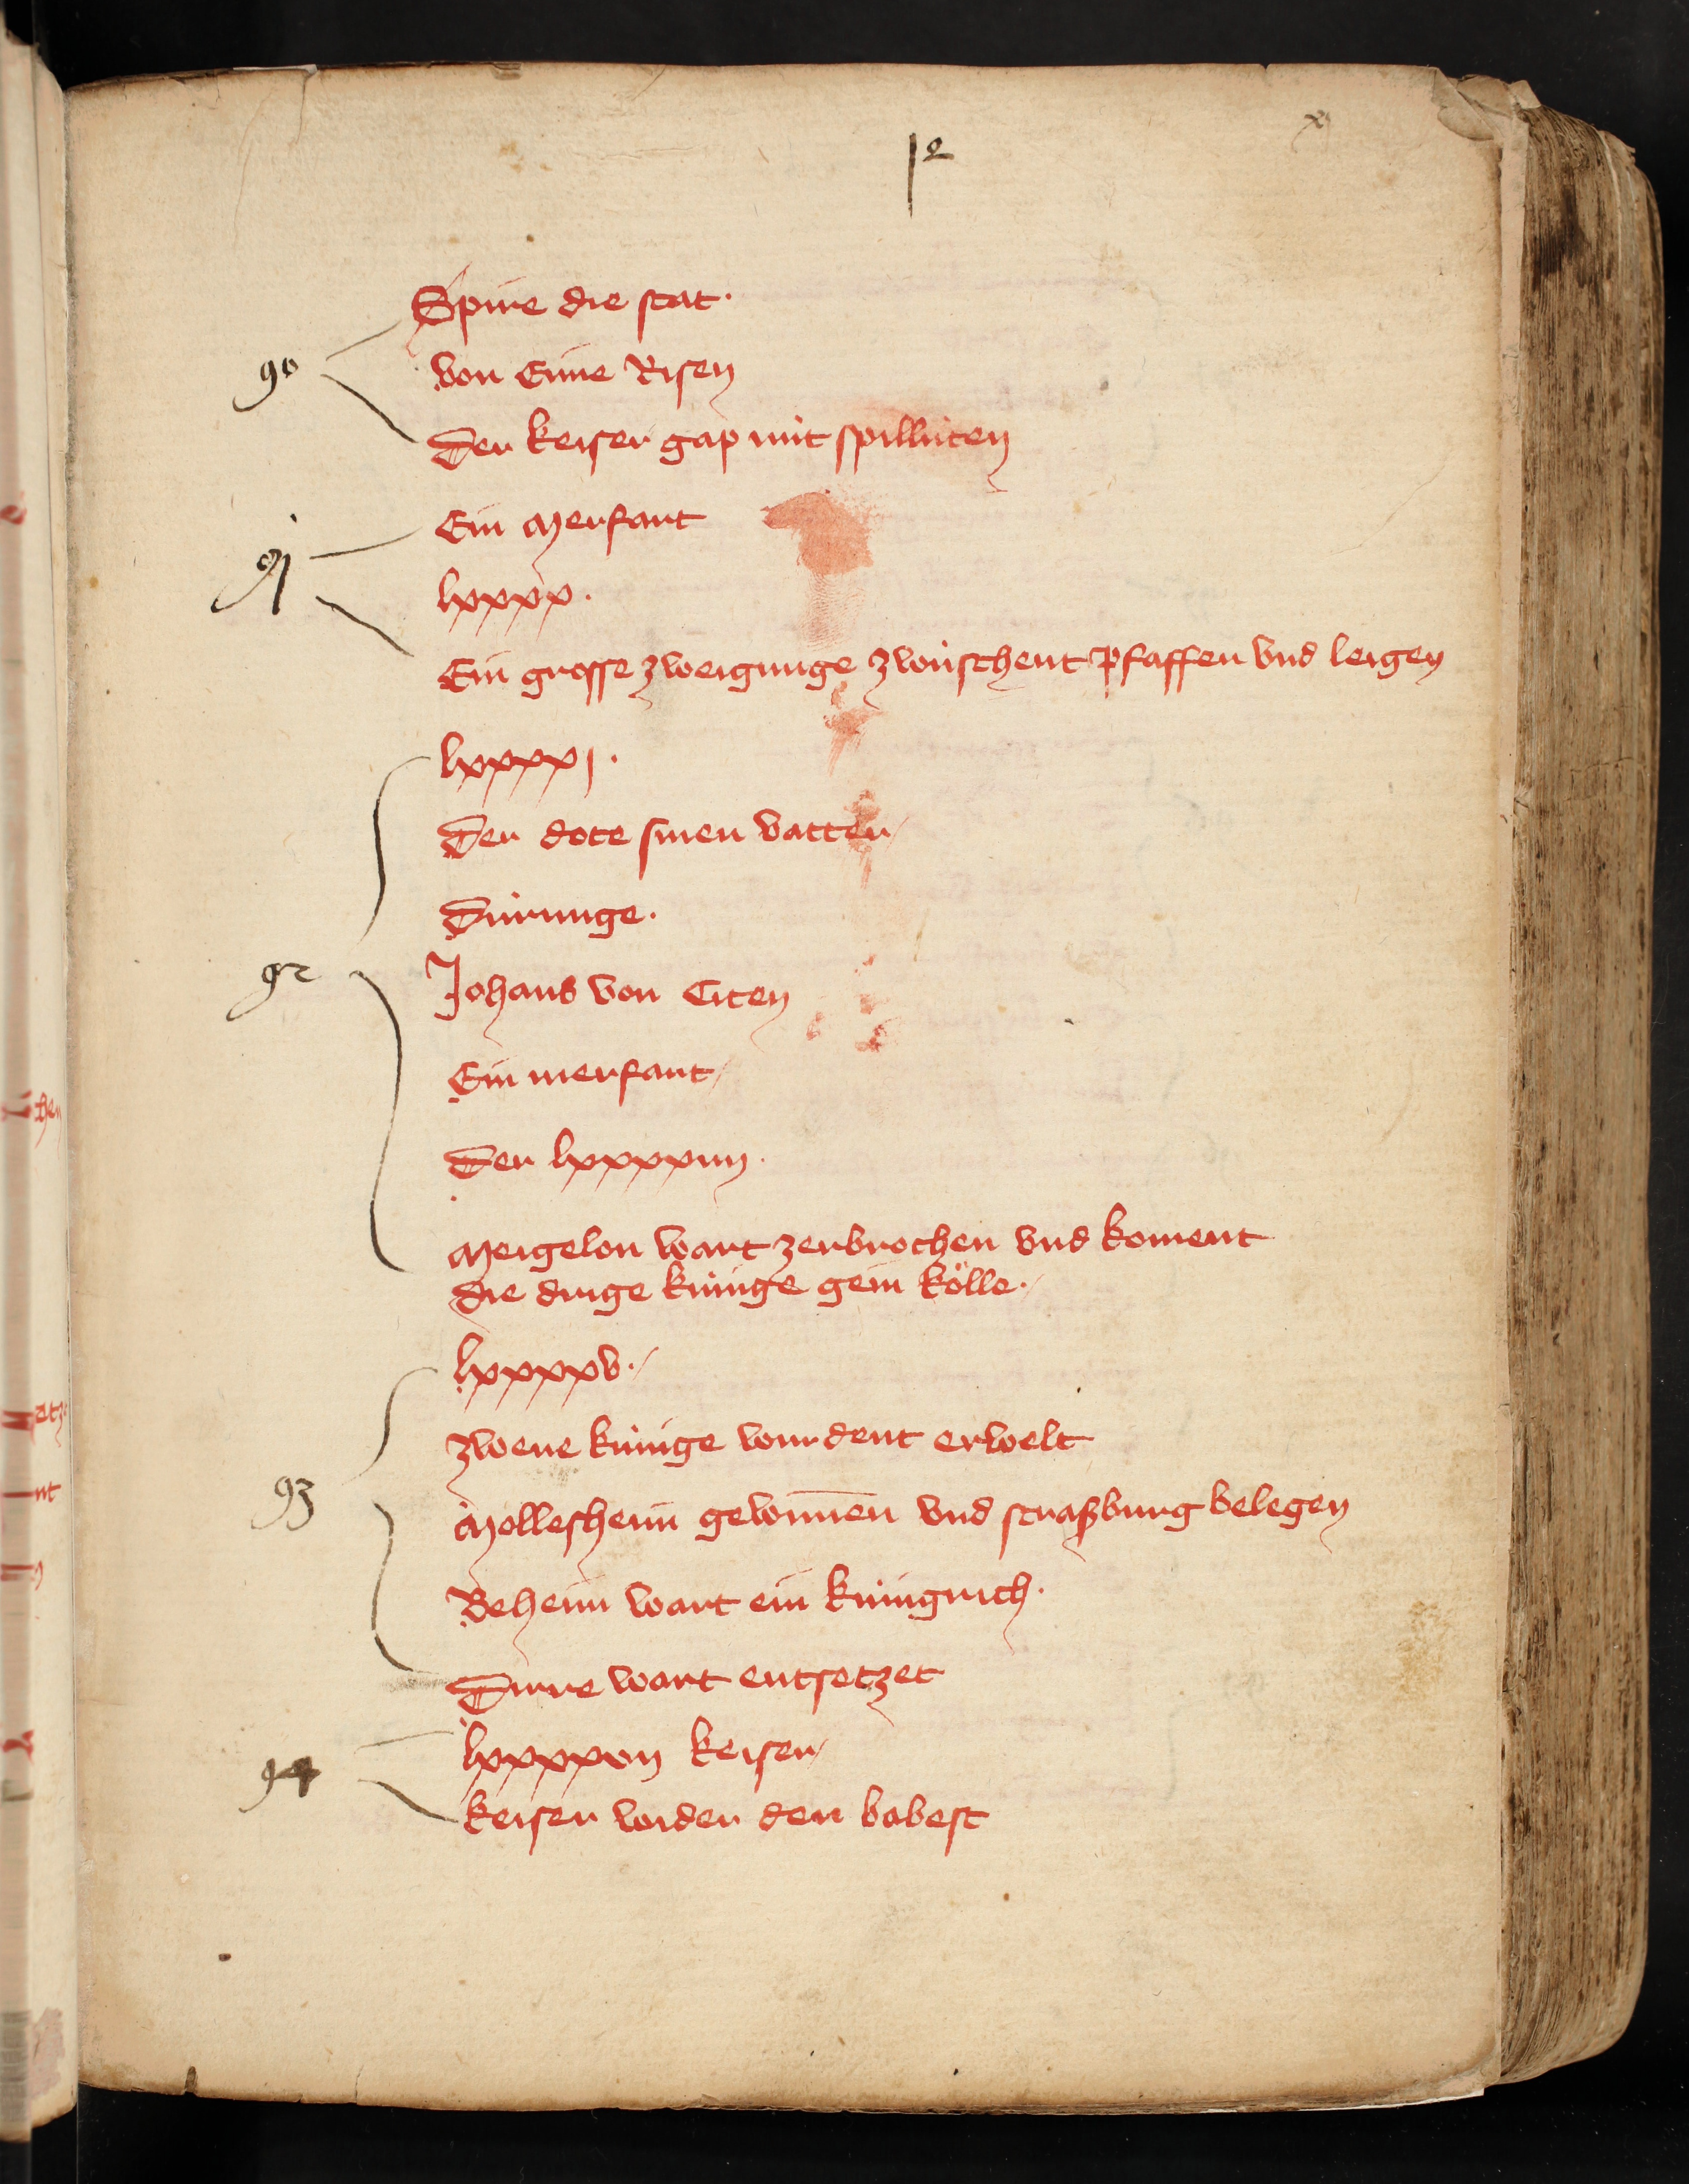 12
x
Spire die stat.
90
von Eime Risen
Der keiser gap mit spillüten
Ein Merfart
91
lxxxx.
Ein grosse zweigunge zwüschent pfaffen vnd leigen
lxxxxj.
Der dote sinen vatter
Dürunge.
92
Johans von Citen
Ein merfart
Der lxxxxiiij.
Meigelon wart zerbrochen vnd koment
die drige künige gein kölle.
lxxxxv.
zwene künige wurdent erwelt
93
Mollesheim gewunnen vnd straßburg belegen
Beheim wart ein künigrich.
Dirre wart entsetzet
lxxxxvij keiser
94
keiser wider den babest